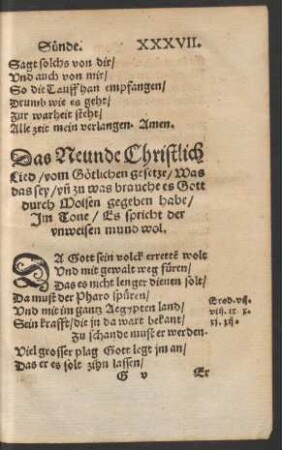 Sünde. XXXVII.
Sagt solchs von dir/
Vnd auch von mir/
So die Tauff han empfangen/
Drumb wie es geht/
Zur warheit steht/
Alle zeit mein verlangen. Amen.
Das Neunde Christlich
Lied/vom Götlichen gesetze/Was
das sey/vñ zu was brauche es Gott
durch Moisen gegeben habe/
Im Tone/Es spricht der
vnweisen mund wol.
DA Gott sein volck erretten wolt
Vnd mit gewalt weg füren/
Das es nicht lenger dienen solt/
Da must der Pharo spüren/
Vnd mit im gantz Aegypten land/
Sein krafft/die in da wart bekant/
Zu schande must er werden.
Exod. vij.
viij. ix. x.
xi. xij.
Viel grosser plag Gott legt im an/
Das er es solt zihn lassen/
G v Er